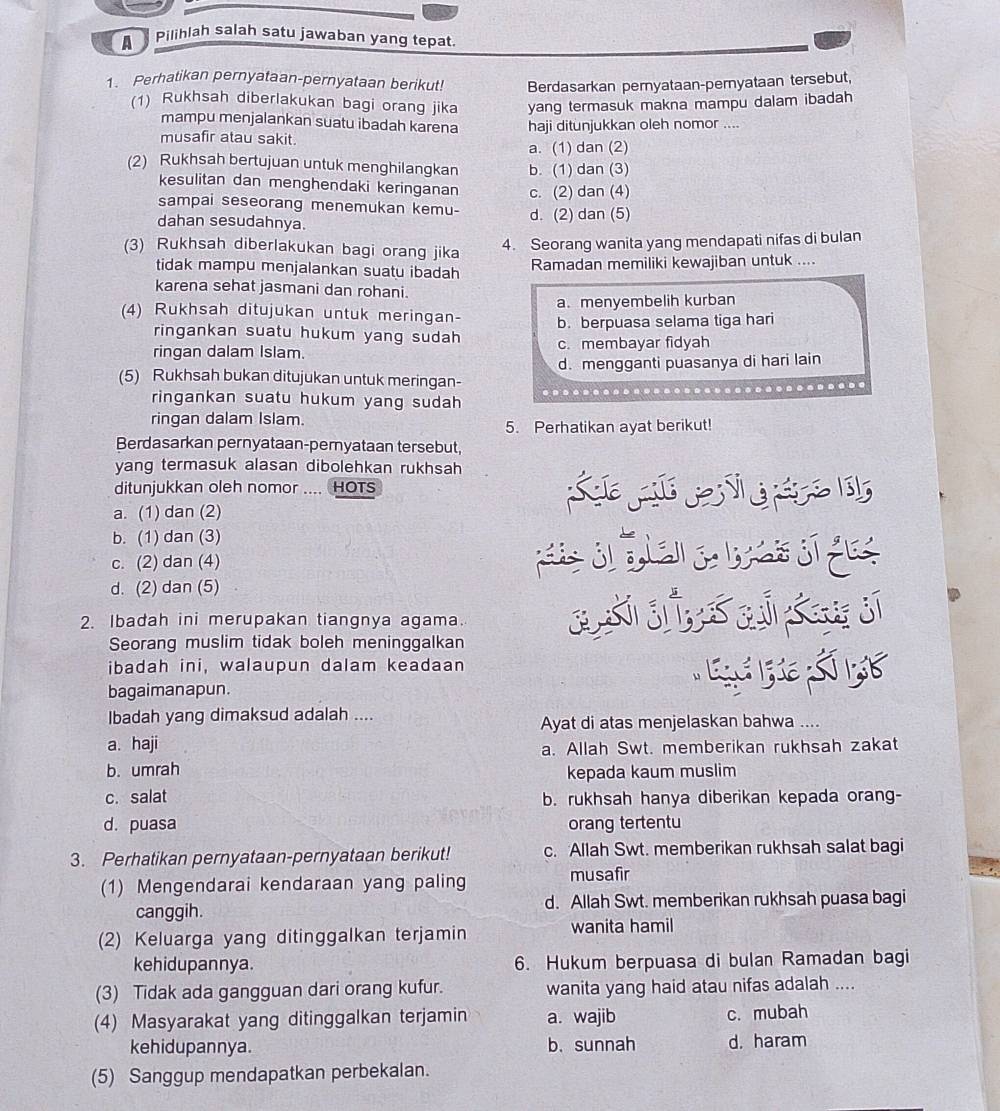 A Pilihlah salah satu jawaban yang tepat.
1. Perhatikan pernyataan-pernyataan berikut!
(1) Rukhsah diberlakukan bagi orang jika
mampu menjalankan suatu ibadah karena
musafir atau sakit.
(2) Rukhsah bertujuan untuk menghilangkan
kesulitan dan menghendaki keringanan
sampai seseorang menemukan kemu-
dahan sesudahnya.
(3) Rukhsah diberlakukan bagi orang jika
tidak mampu menjalankan suatu ibadah
karena sehat jasmani dan rohani.
(4) Rukhsah ditujukan untuk meringan-
ringankan suatu hukum yang sudah
ringan dalam Islam.
(5) Rukhsah bukan ditujukan untuk meringan-
ringankan suatu hukum yang sudah
ringan dalam Islam.
Berdasarkan pernyataan-pernyataan tersebut,
yang termasuk alasan dibolehkan rukhsah
ditunjukkan oleh nomor .... HOTS
a. (1) dan (2)
b. (1) dan (3)
c. (2) dan (4)
d. (2) dan (5)
2. Ibadah ini merupakan tiangnya agama.
Seorang muslim tidak boleh meninggalkan
ibadah ini, walaupun dalam keadaan
bagaimanapun.
Ibadah yang dimaksud adalah ....
a. haji
b. umrah
c. salat
d. puasa
3. Perhatikan pernyataan-pernyataan berikut!
(1) Mengendarai kendaraan yang paling
canggih.
(2) Keluarga yang ditinggalkan terjamin
kehidupannya.
(3) Tidak ada gangguan dari orang kufur.
(4) Masyarakat yang ditinggalkan terjamin
kehidupannya.
(5) Sanggup mendapatkan perbekalan.
Berdasarkan pernyataan-pernyataan tersebut,
yang termasuk makna mampu dalam ibadah
haji ditunjukkan oleh nomor ....
a. (1) dan (2)
b. (1) dan (3)
c. (2) dan (4)
d. (2) dan (5)
4. Seorang wanita yang mendapati nifas di bulan
Ramadan memiliki kewajiban untuk ....
a. menyembelih kurban
b. berpuasa selama tiga hari
c. membayar fidyah
d. mengganti puasanya di hari lain
5. Perhatikan ayat berikut!
وَإِذَا ضَرَبْتُمْ فِى الْأَرْضِ فَلَيْسَ عَلَيْكُمْ
جُنَاحٌ أَنْ تَقْصُرُوْا مِنَ الصَّلٰوةِ إِنْ خِفْتُمْ
أَنْ يَفْتِنَكُمُ الَّذِيْنَ كَفَرُوْاۗ إِنَّ الْكٰفِرِيْنَ
كَانُوْا لَكُمْ عَدُوًّا مُّبِيْنًا
Ayat di atas menjelaskan bahwa ....
a. Allah Swt. memberikan rukhsah zakat
kepada kaum muslim
b. rukhsah hanya diberikan kepada orang-
orang tertentu
c. Allah Swt. memberikan rukhsah salat bagi
musafir
d. Allah Swt. memberikan rukhsah puasa bagi
wanita hamil
6. Hukum berpuasa di bulan Ramadan bagi
wanita yang haid atau nifas adalah ....
a. wajib c. mubah
b. sunnah d. haram